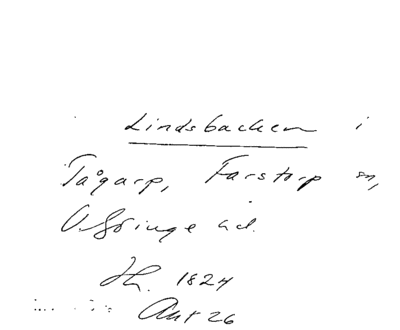 Lindsbacken i
Tågarp, Farstorp sn,
V. Göinge hd.
1824
Akt 26